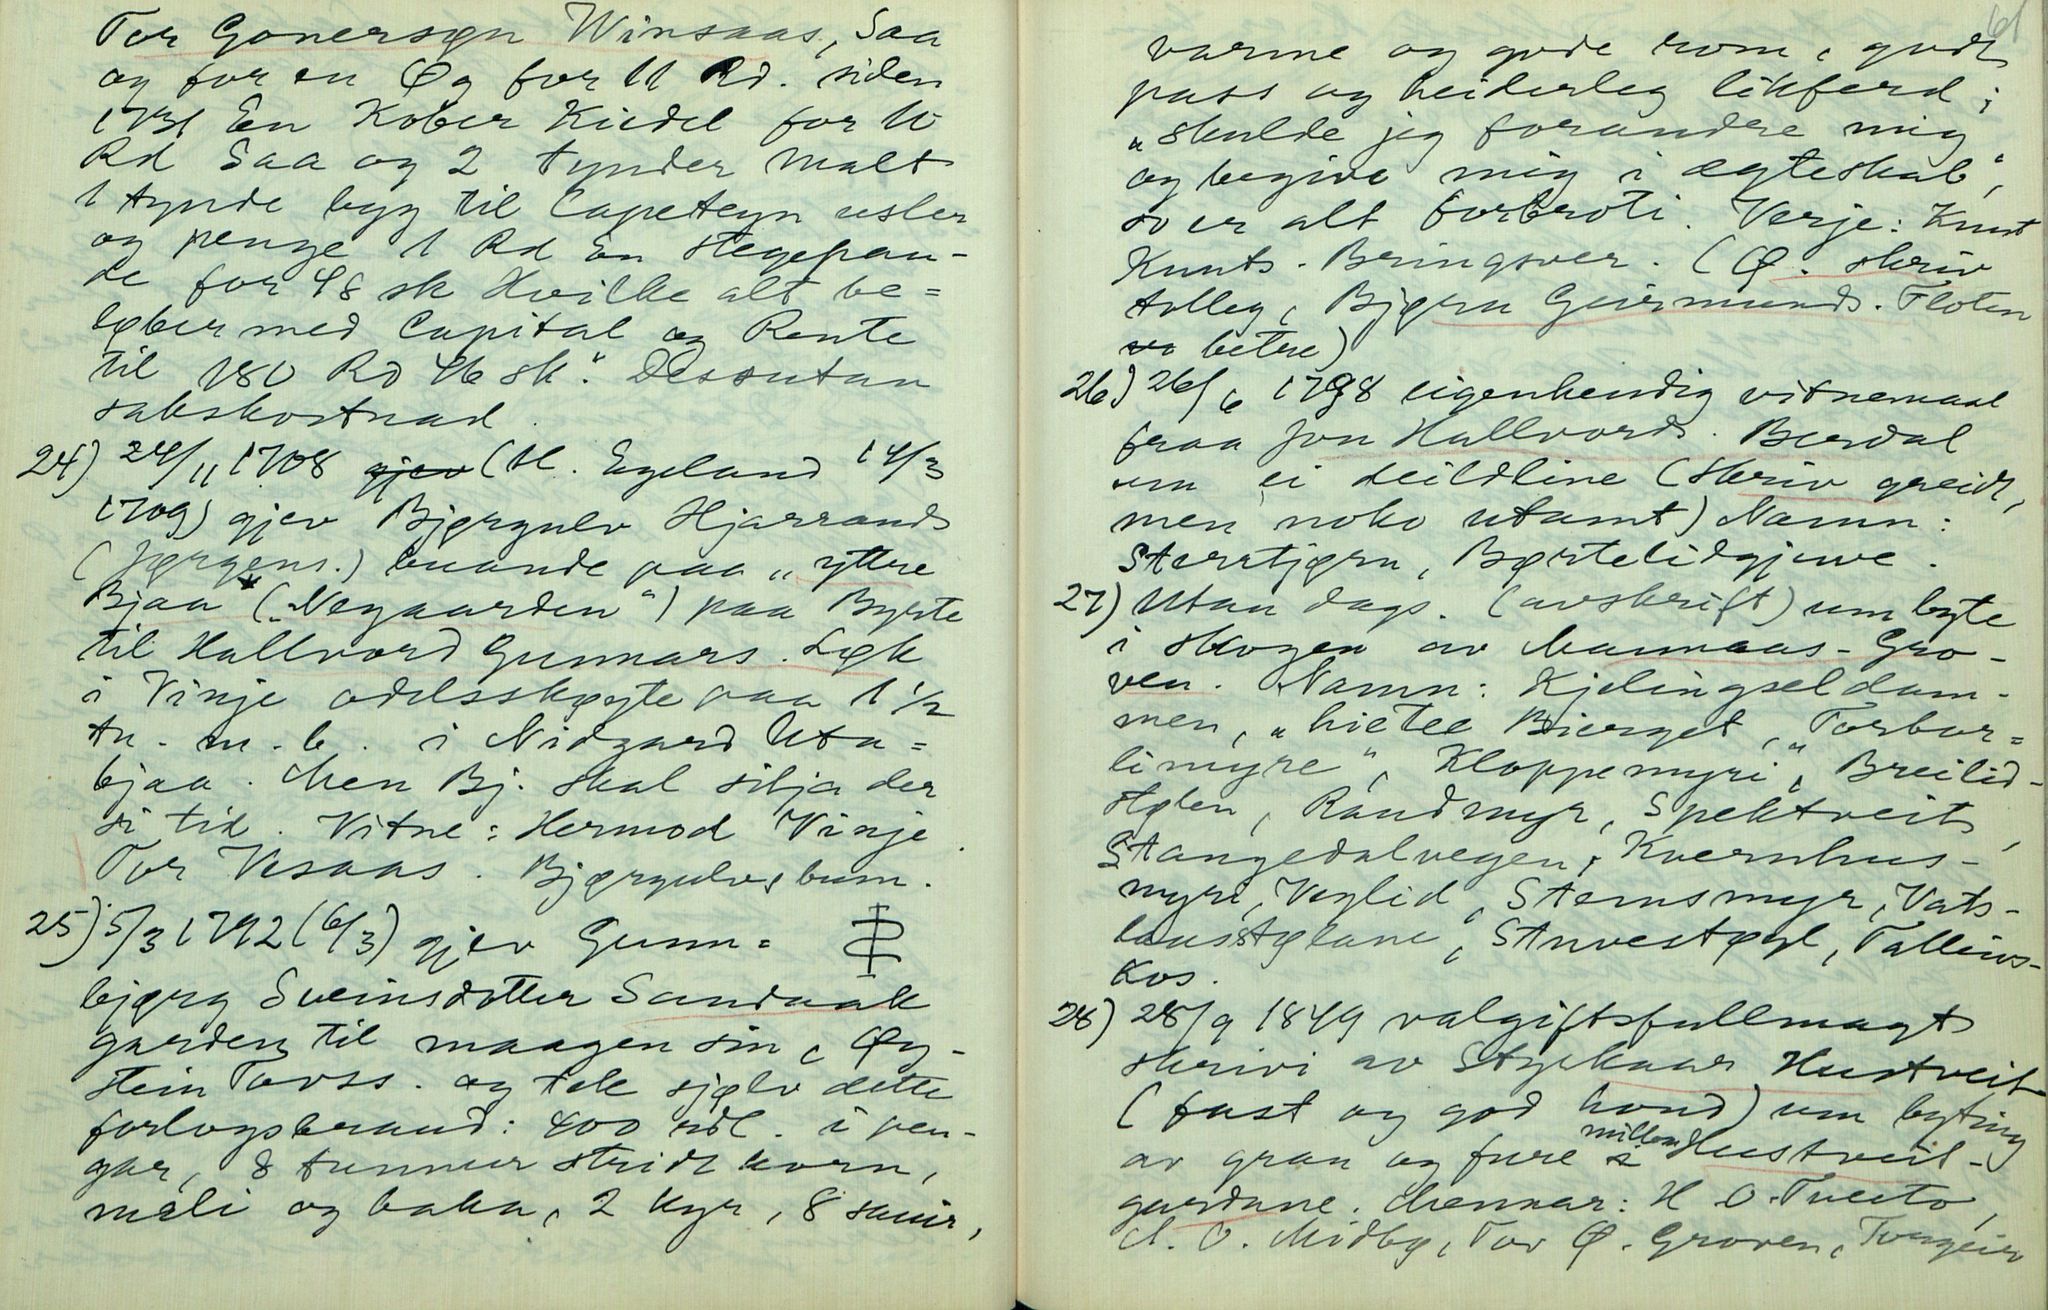 Tor Gonersøn Winsaas, Saa
og for en Øg for 11 Rd. siden
1731 En Kober Kiedel for 10
Rd Saa og 2 tynder malt
1 tynde byg til Capeteyn usler
og penge 1 Rd En stegepan-
de for 48 sk Hvilke alt be=
løber med Capital og Rente
til 180 Rd 46 sk". Dessutan
sakskostnad.
24) 24/11 1708 (st. Egeland 14/3
1709) gjev Bjørgulv Hjarrands
(Jørgens.) buande paa „ yttre
Bjaa * („Negaarden") paa Byrte
til Hallvord Gunnars. Løk
i Vinje odelsskøyte paa 1 1/2
tn. m. b. i Nidgard Uta=
bjaa. Men Bj. skal sitja der
si tid. Vitne: Hermod Vinje.
Tor Vesaas. Bjørgulvs bum.
25) 5/3 1792 (6/3) gjev Gunn=
bjørg Sveinsdotter Sandaak
garden til maagen sin, Øy-
stein Tovss. og tek sjølv dette
forlogsbraud: 400 rdl. i pen-
gar, 8 tunnur stridt korn,
mali og baka, 2 kyr, 8 sauir,
61
varme og gode rom, godt
pass og heiderleg likferd;
„skulde jeg forandre mig
og begive mig i ægteskab",
so er alt forbroti. Verje: Knut
Knuts. Bringsver. (Ø. skriv
tolleg, Bjørn Geirmunds. Floten
betre)
26) 26/6 1798 eigenhendig vitnemaal
fraa Jon Hallvords. Berdal
um ei deildline (skriv greidt,
men noko utamt) Namn:
Sterrtjørn, Børtelidgjuve.
27) Utan dags. (avskrift) um byte
i skogen av Manaas-Gro-
ven. Namn: Kjelingseldam-
men, „hietee Bierget, „Torbor=
limyre", Kloppemyri, Breilid-
stølen, Raudmyr, Spektveit,
Stangedalvegen, Kvernhus-
myri, Veglid, Stemsmyr, Vats-
lausstølane, Stuvestøyl, Tallius-
kos.
28) 28/9 1849 valgiftsfullmagt
skrivi av Styrkaar Hustveit
(fast og god hond) um byting
av gran og fure millom Hustveit-
gardane. Mennar: H O. Tveito,
A. O. Midbø, Tov Ø. Groven, Torgeir